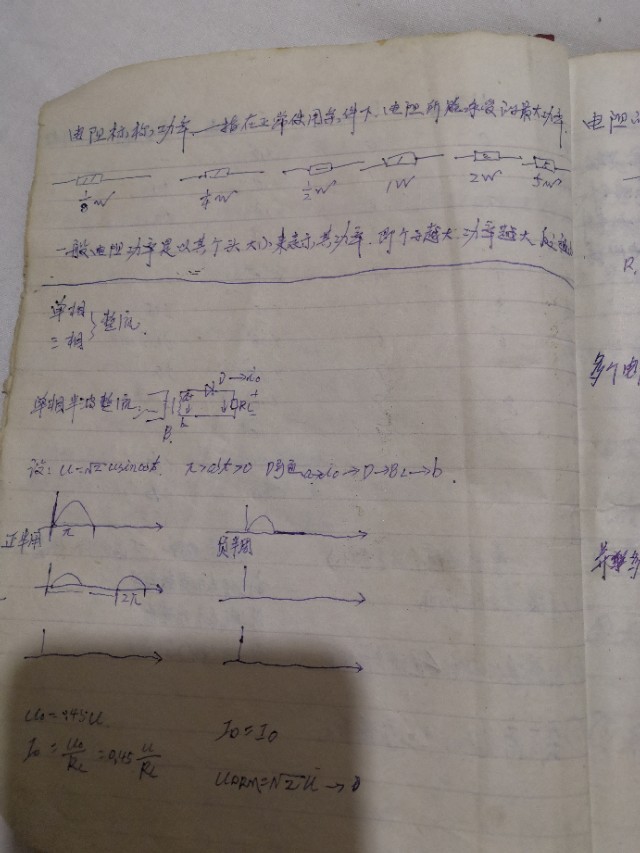 电阻标称功率——指在正常使用条件下,电阻所能承受的最大功率.
1/8W 1/4W 1/2W 1W 2W 5W
一般电阻功率是以其个头大小来表示其功率.即个子越大.功率越大
单相
三相 }整流.
单相半波整流: D→io
a b B RL
设:U=√2usinωt. π>ωt>0 D导通a→io→D→RL→b.
正半周 π 负半周
2π
Uo=0.45U
Io=Uo/RL=0.45U/RL
ID=Io
UDRM=√2U→D
电阻
R1
多个电